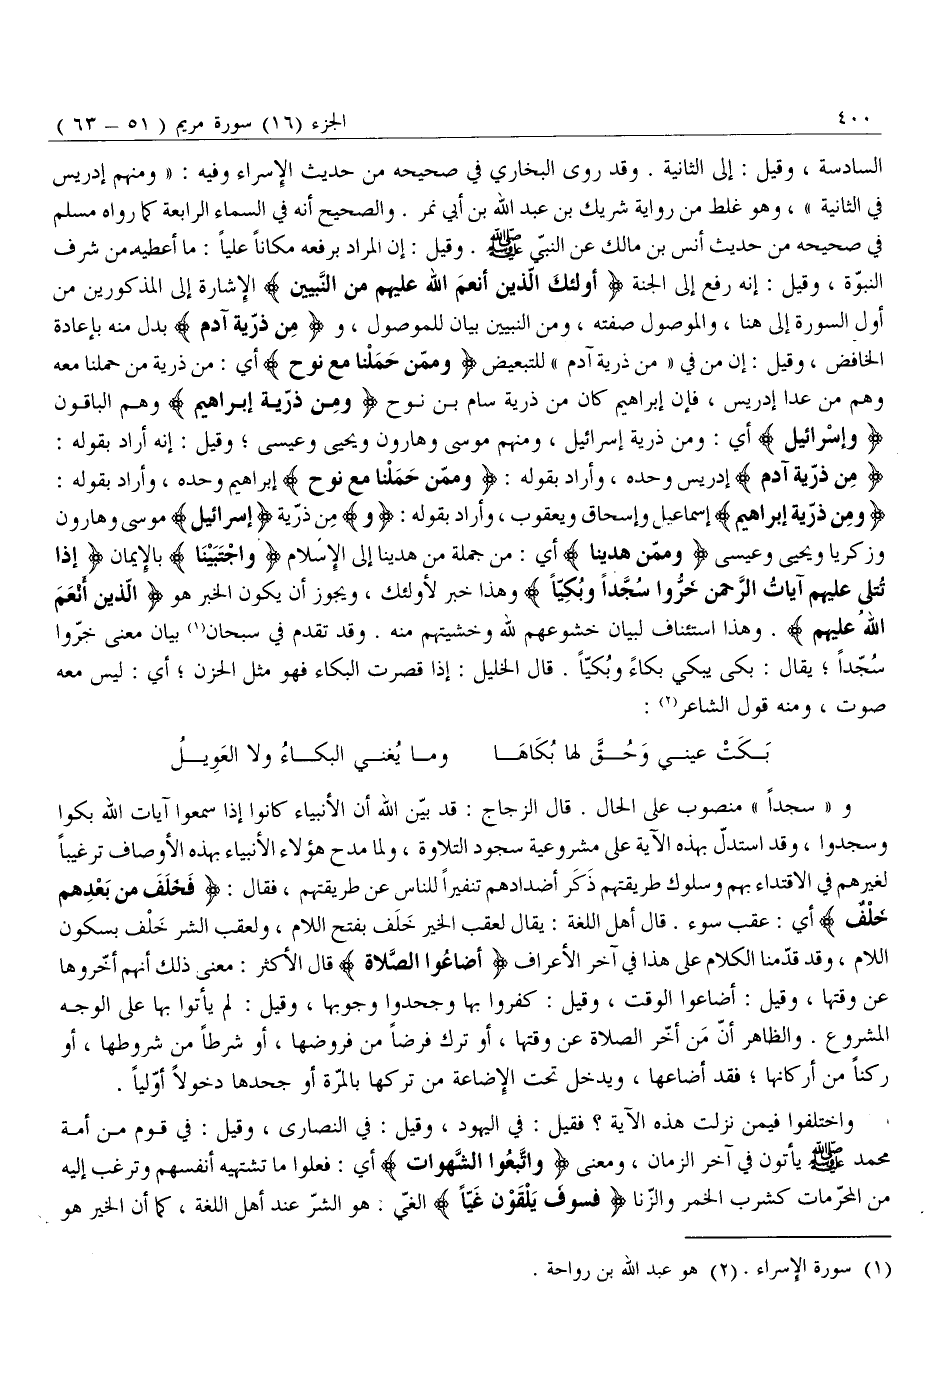 ٤٠٠
الجزء (١٦) سورة مريم ( ٥١ – ٦٣ )
السادسة ، وقيل : إلى الثانية . وقد روى البخاري في صحيحه من حديث الإسراء وفيه : « ومنهم إدريس
في الثانية » ، وهو غلط من رواية شريك بن عبد الله بن أبي نمر . والصحيح أنه في السماء الرابعة كما رواه مسلم
في صحيحه من حديث أنس بن مالك عن النبيّ ﷺ . وقيل : إن المراد برفعه مكاناً علياً : ما أعطيه من شرف
النبوّة ، وقيل : إنه رفع إلى الجنة ﴿ أولئك الّذين أنعمَ الله عليهم من النَّبيين ﴾ الإشارة إلى المذكورين من
أول السورة إلى هنا ، والموصول صفته ، ومن النبيين بيان للموصول ، و ﴿ مِن ذرّية آدم ﴾ بدل منه بإعادة
الخافض ، وقيل : إن من في « من ذرية آدم » للتبعيض ﴿ وممّن حَمَلْنا مع نوح ﴾ أي : من ذرية من حملنا معه
وهم من عدا إدريس ، فإن إبراهيم كان من ذرية سام بن نوح ﴿ ومِن ذرّية إبراهيم ﴾ وهم الباقون
﴿ وإسْرائيل ﴾ أي : ومن ذرية إسرائيل ، ومنهم موسى وهارون ويحيى وعيسى ؛ وقيل : إنه أراد بقوله :
﴿ مِن ذرّية آدم ﴾ إدريس وحده ، وأراد بقوله : ﴿ وممّن حَمَلْنا مع نوح ﴾ إبراهيم وحده ، وأراد بقوله :
﴿ ومِن ذرّية إبراهيم ﴾ إسماعيل وإسحاق ويعقوب ، وأراد بقوله : ﴿ و ﴾ مِن ذرّية ﴿ إسرائيل ﴾ موسى وهارون
وزكريا ويحيى وعيسى ﴿ وممّن هدينا ﴾ أي : من جملة من هدينا إلى الإسلام ﴿ واجْتَبَيْنا ﴾ بالإيمان ﴿ إذا
تُتلى عليهم آياتُ الرَّحمن خَرُّوا سُجَّداً وبُكِيّاً ﴾ وهذا خبر لأولئك ، ويجوز أن يكون الخبر هو ﴿ الّذين أَنْعَمَ
اللهُ عليهم ﴾ . وهذا استئناف لبيان خشوعهم لله وخشيتهم منه . وقد تقدم في سبحان(١) بيان معنى خرّوا
سُجّداً ؛ يقال : بكى يبكي بكاءً وبُكيّاً . قال الخليل : إذا قصرت البكاء فهو مثل الحزن ؛ أي : ليس معه
صوت ، ومنه قول الشاعر(٢) :
بَكَتْ عيني وَحُقَّ لها بُكَاهَا وما يُغني البكاءُ ولا العَوِيلُ
و « سجداً » منصوب على الحال . قال الزجاج : قد بيّن الله أن الأنبياء كانوا إذا سمعوا آيات الله بكوا
وسجدوا ، وقد استدلّ بهذه الآية على مشروعية سجود التلاوة ، ولما مدح هؤلاء الأنبياء بهذه الأوصاف ترغيباً
لغيرهم في الاقتداء بهم وسلوك طريقتهم ذَكَر أضدادهم تنفيراً للناس عن طريقتهم ، فقال : ﴿ فَخَلَفَ من بَعْدِهم
خَلْفٌ ﴾ أي : عقب سوء . قال أهل اللغة : يقال لعقب الخير خَلَف بفتح اللام ، ولعقب الشر خَلْف بسكون
اللام ، وقد قدّمنا الكلام على هذا في آخر الأعراف ﴿ أضاعُوا الصَّلاة ﴾ قال الأكثر : معنى ذلك أنهم أخّروها
عن وقتها ، وقيل : أضاعوا الوقت ، وقيل : كفروا بها وجحدوا وجوبها ، وقيل : لم يأتوا بها على الوجه
المشروع . والظاهر أنّ مَن أخّر الصلاة عن وقتها ، أو ترك فرضاً من فروضها ، أو شرطاً من شروطها ، أو
ركناً من أركانها ؛ فقد أضاعها ، ويدخل تحت الإضاعة من تركها بالمرّة أو جحدها دخولاً أوّلياً .
واختلفوا فيمن نزلت هذه الآية ؟ فقيل : في اليهود ، وقيل : في النصارى ، وقيل : في قوم من أمة
محمد ﷺ يأتون في آخر الزمان ، ومعنى ﴿ واتَّبعُوا الشَّهوات ﴾ أي : فعلوا ما تشتهيه أنفسهم وترغب إليه
من المحرّمات كشرب الخمر والزّنا ﴿ فسوفَ يَلْقَوْن غَيّاً ﴾ الغيّ : هو الشرّ عند أهل اللغة ، كما أن الخير هو
(١) سورة الإسراء . (٢) هو عبد الله بن رواحة .